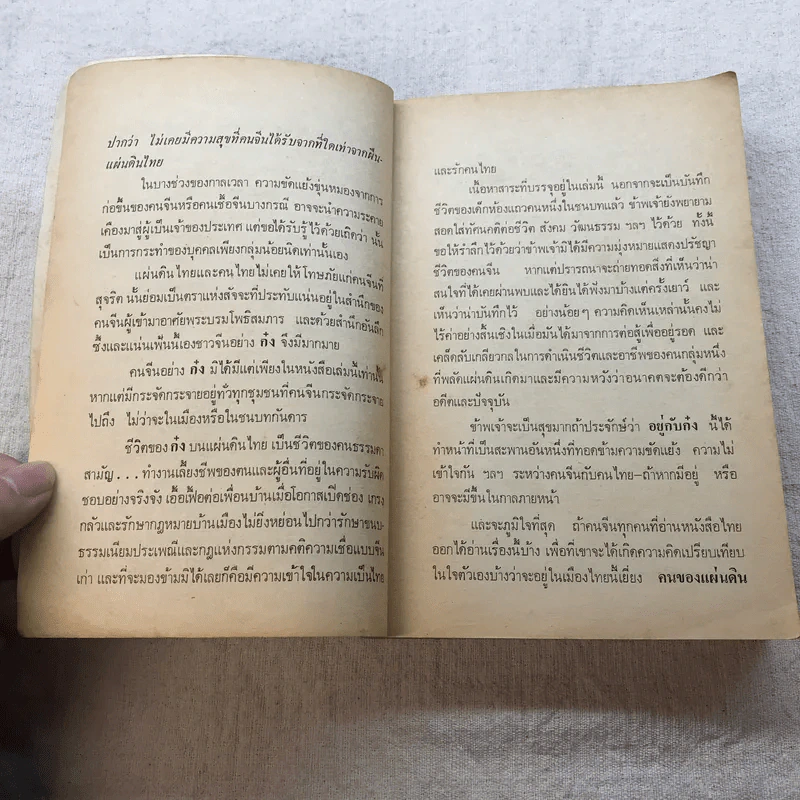 ปากว่า ไม่เคยมีความสุขที่คนจีนได้รับจากที่ใดเท่าจากผืน-
แผ่นดินไทย
ในบางช่วงของกาลเวลา ความขัดแย้งขุ่นหมองจากการ
ก่อขึ้นของคนจีนหรือคนเชื้อจีนบางกรณี อาจจะนำความระคาย
เคืองมาสู่ผู้เป็นเจ้าของประเทศ แต่ขอได้รับรู้ไว้ด้วยเถิดว่า นั้น
เป็นการกระทำของบุคคลเพียงกลุ่มน้อยนิดเท่านั้นเอง
แผ่นดินไทยและคนไทยไม่เคยให้โทษภัยแก่คนจีนที่
สุจริต นั้นย่อมเป็นตราแห่งสัจจะที่ประทับแน่นอยู่ในสำนึกของ
คนจีนผู้เข้ามาอาศัยพระบรมโพธิสมภาร และด้วยสำนึกอันลึก
ซึ้งและแน่นแฟ้นนี้เองชาวจีนอย่าง ก๋ง จึงมีมากมาย
คนจีนอย่าง ก๋ง มิได้มีแต่เพียงในหนังสือเล่มนี้เท่านั้น
หากแต่มีกระจัดกระจายอยู่ทั่วทุกชุมชนที่คนจีนกระจัดกระจาย
ไปถึง ไม่ว่าจะในเมืองหรือในชนบทกันดาร
ชีวิตของ ก๋ง บนแผ่นดินไทย เป็นชีวิตของคนธรรมดา
สามัญ . . . ทำงานเลี้ยงชีพของตนและผู้อื่นที่อยู่ในความรับผิด
ชอบอย่างจริงจัง เอื้อเฟื้อต่อเพื่อนบ้านเมื่อโอกาสเปิดช่อง เกรง
กลัวและรักษากฎหมายบ้านเมืองไม่ยิ่งหย่อนไปกว่ารักษาขนบ-
ธรรมเนียมประเพณีและกฎแห่งกรรมตามคติความเชื่อแบบจีน
เก่า และที่จะมองข้ามมิได้เลยก็คือมีความเข้าใจในความเป็นไทย
และรักคนไทย
เนื้อหาสาระที่บรรจุอยู่ในเล่มนี้ นอกจากจะเป็นบันทึก
ชีวิตของเด็กห้องแถวคนหนึ่งในชนบทแล้ว ข้าพเจ้ายังพยายาม
สอดใส่ทัศนคติต่อชีวิต สังคม วัฒนธรรม ฯลฯ ไว้ด้วย ทั้งนี้
ขอให้รำลึกไว้ด้วยว่าข้าพเจ้ามิได้มีความมุ่งหมายแสดงปรัชญา
ชีวิตของคนจีน หากแต่ปรารถนาจะถ่ายทอดสิ่งที่เห็นว่าน่า
สนใจที่ได้เคยผ่านพบและได้ยินได้ฟังมาบ้างแต่ครั้งเยาว์ และ
เห็นว่าน่าบันทึกไว้ อย่างน้อยๆ ความคิดเห็นเหล่านั้นคงไม่
ไร้ค่าอย่างสิ้นเชิงในเมื่อมันได้มาจากการต่อสู้เพื่ออยู่รอด และ
เคล็ดลับเกลียวกลในการดำเนินชีวิตและอาชีพของคนกลุ่มหนึ่ง
ที่พลัดแผ่นดินเกิดมาและมีความหวังว่าอนาคตจะต้องดีกว่า
อดีตและปัจจุบัน
ข้าพเจ้าจะเป็นสุขมากถ้าประจักษ์ว่า อยู่กับก๋ง นี้ได้
ทำหน้าที่เป็นสะพานอันหนึ่งที่ทอดข้ามความขัดแย้ง ความไม่
เข้าใจกัน ฯลฯ ระหว่างคนจีนกับคนไทย–ถ้าหากมีอยู่ หรือ
อาจจะมีขึ้นในกาลภายหน้า
และจะภูมิใจที่สุด ถ้าคนจีนทุกคนที่อ่านหนังสือไทย
ออกได้อ่านเรื่องนี้บ้าง เพื่อที่เขาจะได้เกิดความคิดเปรียบเทียบ
ในใจตัวเองบ้างว่าจะอยู่ในเมืองไทยนี้เยี่ยง คนของแผ่นดิน